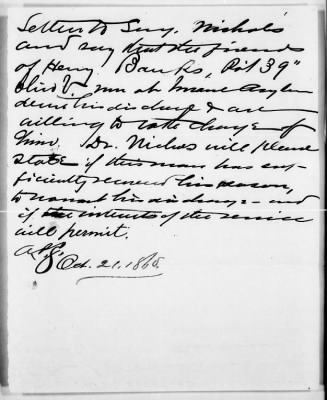 Letter to Surg. Nichols
and say that the friends
of Henry Banks, Pvt 39"
Ohio V. now at Insane Asylum
desire his discharge & are
willing to take charge of
him. Dr. Nichols will please
state if this man has suf-
ficiently recovered his reason,
to warrant his discharge - and
if the interests of the service
will permit.
Oct. 21. 1865.